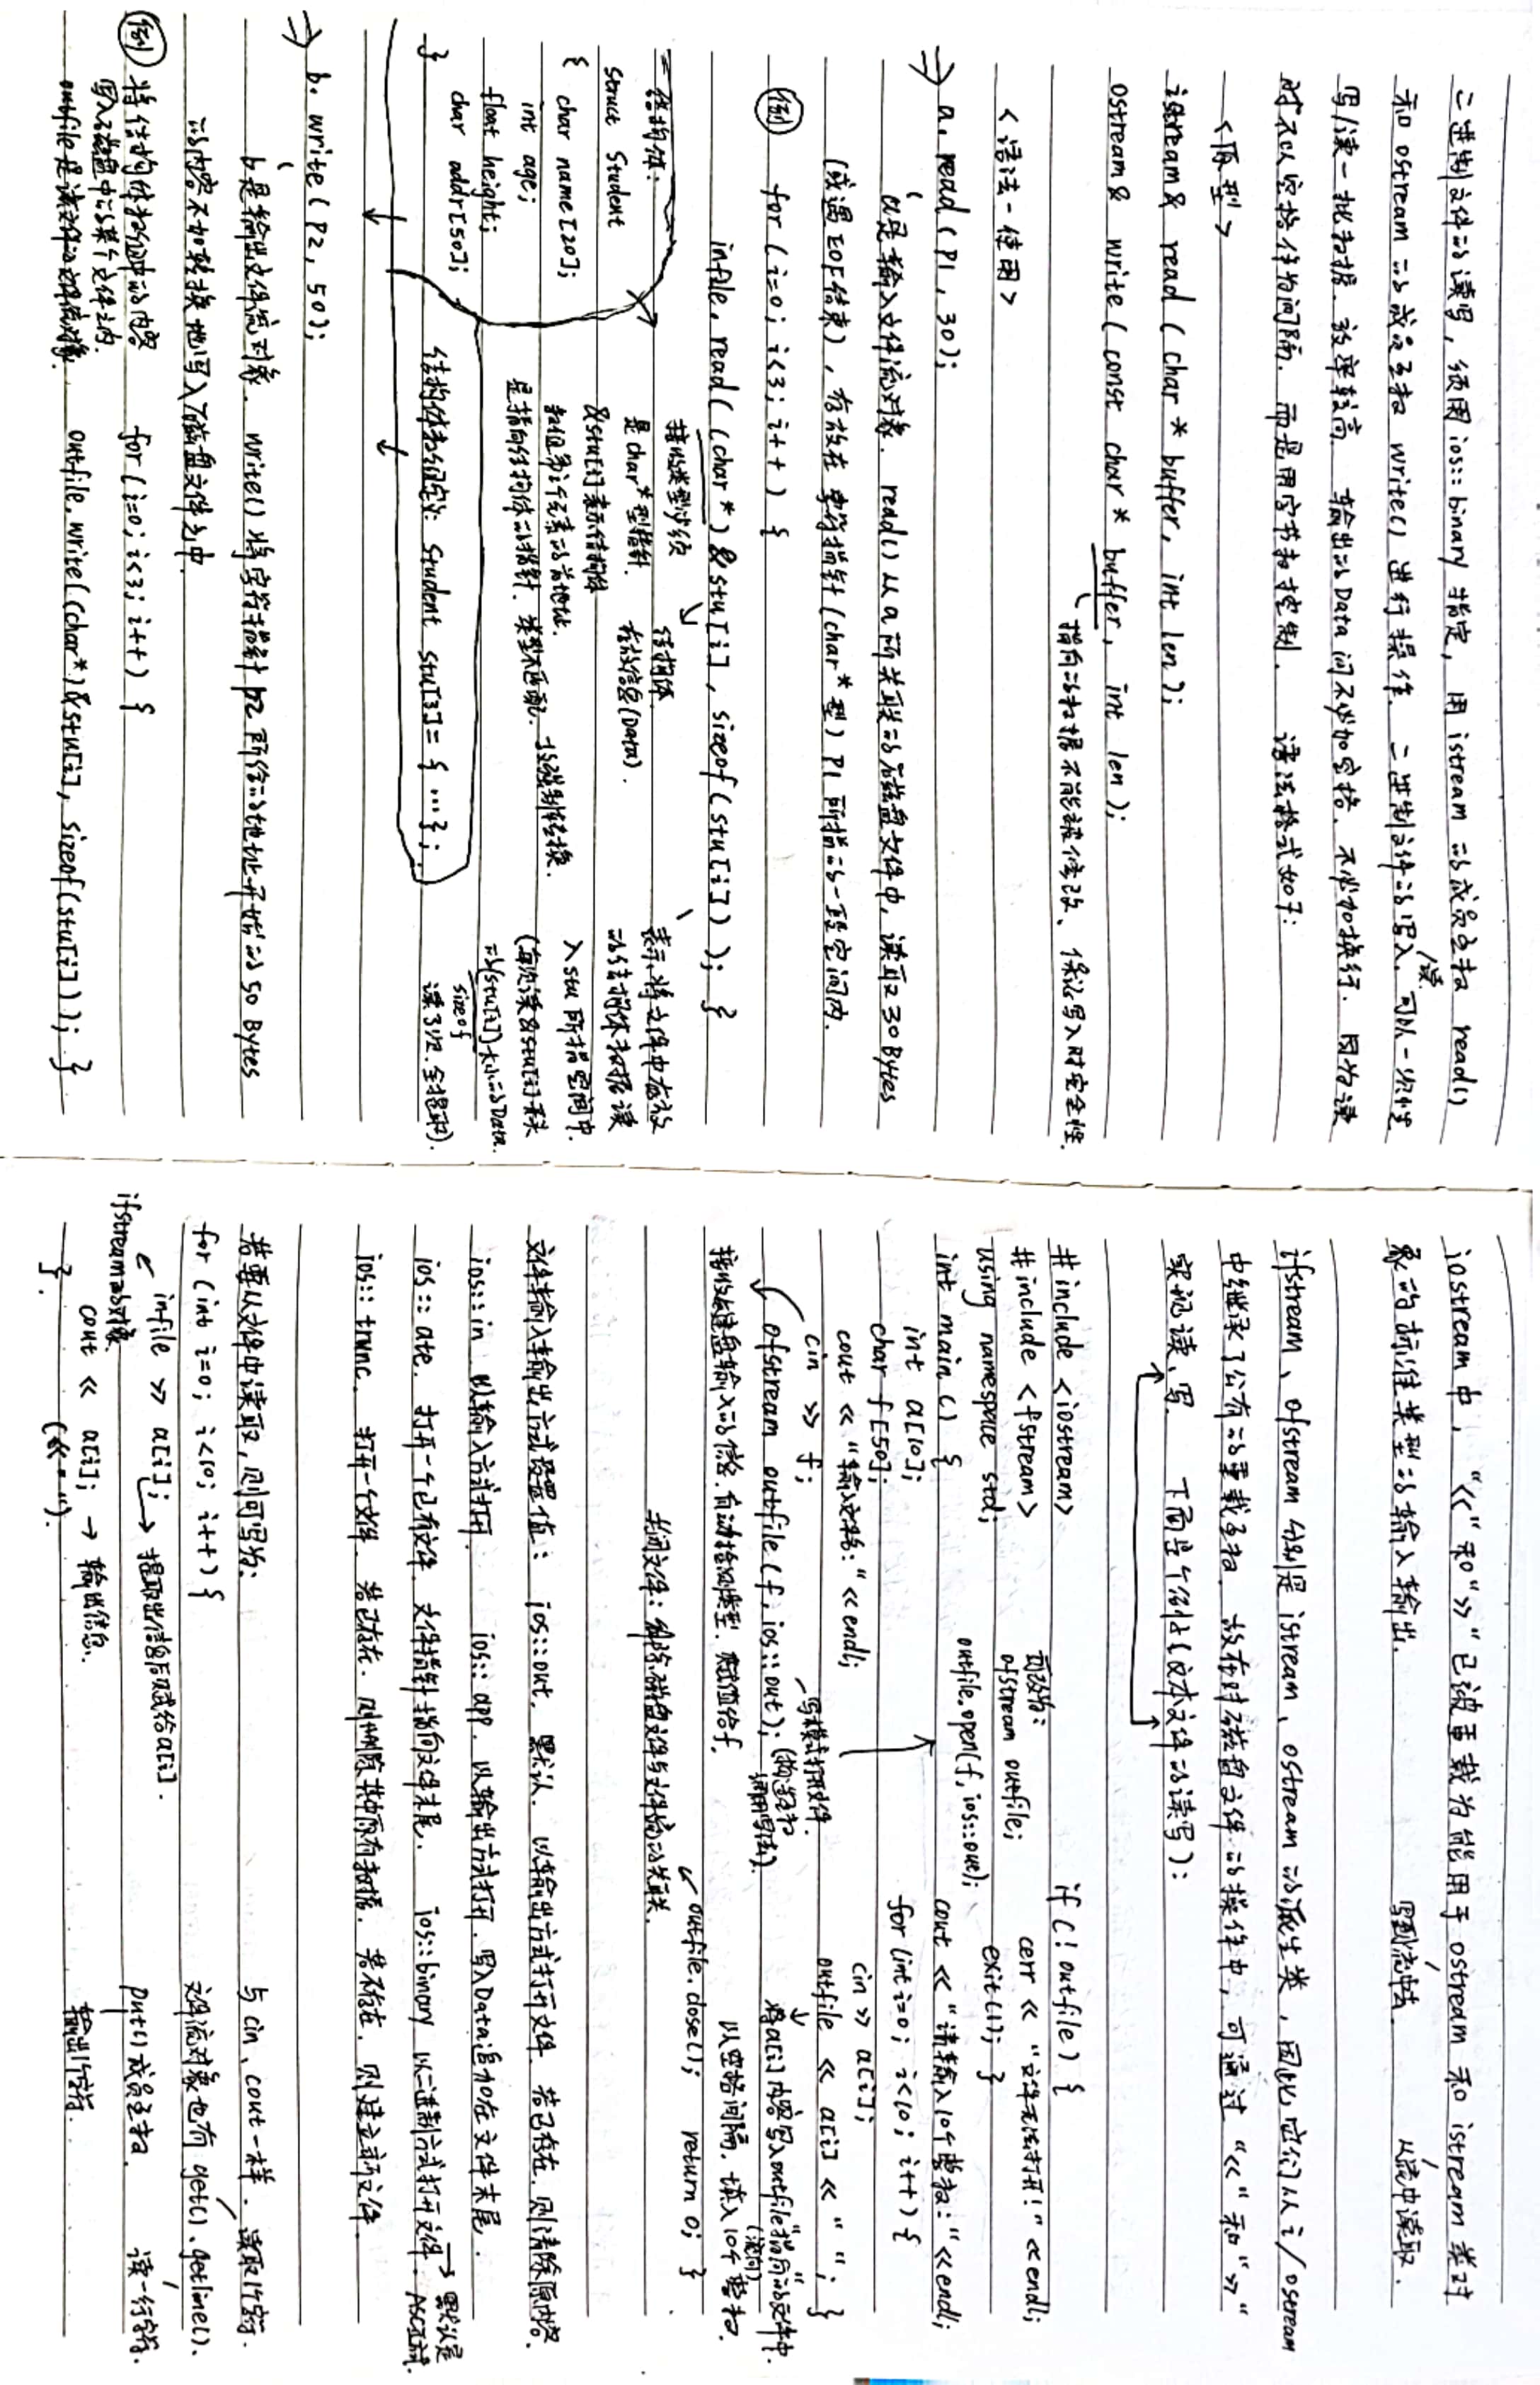 二进制文件的读写，须用 ios::binary 指定，用 istream 的成员函数 read()
和 ostream 的成员函数 write() 进行操作. 二进制文件的写入/读. 可以一次性
写/读一批数据. 效率较高. 输出的Data间不必加空格. 不必加换行. 因为读
时不以空格作为间隔. 而是用字节数控制. 语法格式如下:
<原型>
istream& read ( char * buffer, int len );
ostream & write ( const char * buffer, int len );
指向的数据不能被修改、保证写入时安全性.
<语法-使用>
⇒ a. read ( p1 , 30 );
a是输入文件流对象. read() 从 a 所关联的磁盘文件中, 读取 30 Bytes
(或遇EOF结束) , 存放在 字符指针 (char* 型) p1 所指的一段空间内.
例 for ( i=0; i<3; i++ ) {
infile. read( (char *) & stu [i] , sizeof ( stu [i] ) ); }
接收类型必须
是char*型指针.
&stu[i] 表示结构体
数组第i个元素的首地址.
是指向结构体的指针. 类型不匹配. 故强制转换.
结构体.
存放信息(Data).
表示将文件中存放
的结构体数据读
入stu 所指空间中.
(每次读&stu[i]开头
的(stu[i])大小的Data.
sizeof
读3次. 全提取).
结构体:
struct Student
{ char name [20];
int age;
float height;
char addr[50];
}
结构体数组定义: Student stu[3]= { ... };
⇒ b. write ( p2, 50 );
b是输出文件流对象. write() 将字符指针 p2 所给的地址开始的 50 Bytes
的内容不加转换地写入磁盘文件之中.
例 将结构体数组中的内容
写入磁盘中的某个文件之内.
outfile 是该文件的文件流对象.
for ( i=0; i<3; i++ ) {
outfile. write( (char*) & stu[i], sizeof(stu[i]) ); }
iostream 中, "<<" 和 ">>" 已被重载为能用于 ostream 和 istream 类对
象的标准类型的输入输出. 写到流中去. 从流中读取.
ifstream、ofstream 分别是 istream、ostream 的派生类, 因此它们从 i / ostream
中继承了公有的重载函数. 故在对磁盘文件的操作中, 可通过 "<<" 和 ">>"
实现读、写. 下面是个例子(文本文件的读写):
# include <iostream>
# include <fstream>
using namespace std;
int main () {
int a[10];
char f [50];
cout << "输入文件名:" << endl;
cin >> f;
ofstream outfile ( f, ios::out );
接收键盘输入的信息. 自动检测类型. 赋值给f.
写模式打开文件.
(构造函数
调用写法).
可改为:
ofstream outfile;
outfile.open(f, ios::out);
if ( ! outfile ) {
cerr << "文件无法打开!" << endl;
exit(1); }
cout << "请输入10个整数:" << endl;
for (int i=0; i<10; i++) {
cin >> a[i];
outfile << a[i] << " "; }
将a[i]内容写入outfile"指向"的文件中.
(流向)
以空格间隔. 填入10个整数.
outfile. close(); return 0; }
关闭文件: 解除磁盘文件与文件流的关联.
文件输入输出方式设置值: ios::out. 默认. 以输出方式打开文件. 若已存在, 则清除原内容.
ios::in 以输入方式打开. ios:: app. 以输出方式打开. 写入Data追加在文件末尾.
ios :: ate. 打开一个已有文件. 文件指针指向文件末尾. ios::binary 以二进制方式打开文件. → 默认是
ASCII方式.
ios:: trunc. 打开一个文件. 若已存在. 则删除其中原有数据. 若不存在. 则建立新文件.
若要从文件中读取, 则可写为:
for ( int i=0; i<10; i++ ) {
infile >> a[i]; → 提取出信息后赋给a[i].
ifstream的对象.
cout << a[i]; → 输出信息.
}. (<<" ").
与 cin、cout 一样. 读取1个字符.
文件流对象也有 get(). getline().
put() 成员函数. 读一行字符.
输出1个字符.